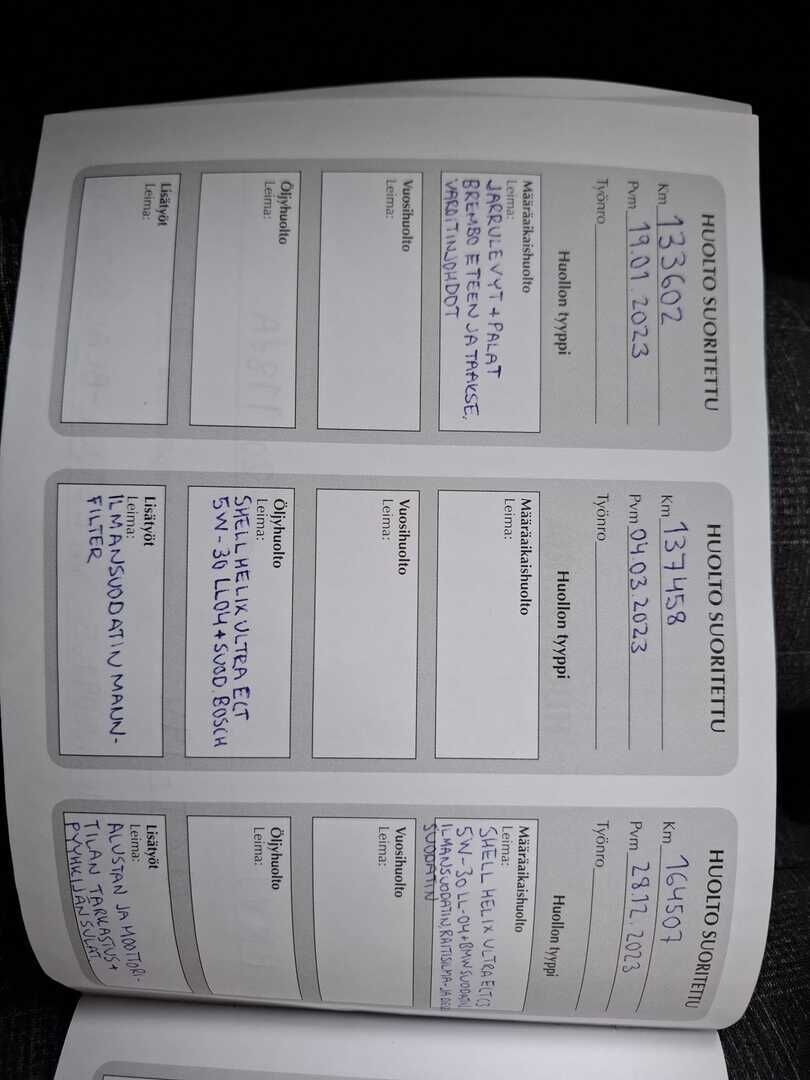 HUOLTO SUORITETTU
Km 133602
Pvm 19.01.2023
Työnro
Huollon tyyppi
Määräaikaishuolto
Leima:
JARRULEVYT + PALAT
BREMBO ETEEN JA TAAKSE,
VAROITINJOHDOT
Vuosihuolto
Leima:
Öljyhuolto
Leima:
Lisätyöt
Leima:
HUOLTO SUORITETTU
Km 137458
Pvm 04.03.2023
Työnro
Huollon tyyppi
Määräaikaishuolto
Leima:
Vuosihuolto
Leima:
Öljyhuolto
Leima:
SHELL HELIX ULTRA ECT
5W-30 LL04 + SUOD. BOSCH
Lisätyöt
Leima:
ILMANSUODATIN MANN-
FILTER
HUOLTO SUORITETTU
Km 164507
Pvm 28.12.2023
Työnro
Huollon tyyppi
Määräaikaishuolto
Leima:
SHELL HELIX ULTRA ECT C3
5W-30 LL-04 + BMW SUODATIN
ILMANSUODATIN, RAITISILMA- JA
SUODATIN
Vuosihuolto
Leima:
Öljyhuolto
Leima:
Lisätyöt
Leima:
ALUSTAN JA MOOTTORI-
TILAN TARKASTUS +
PYYHKIJÄN SULAT